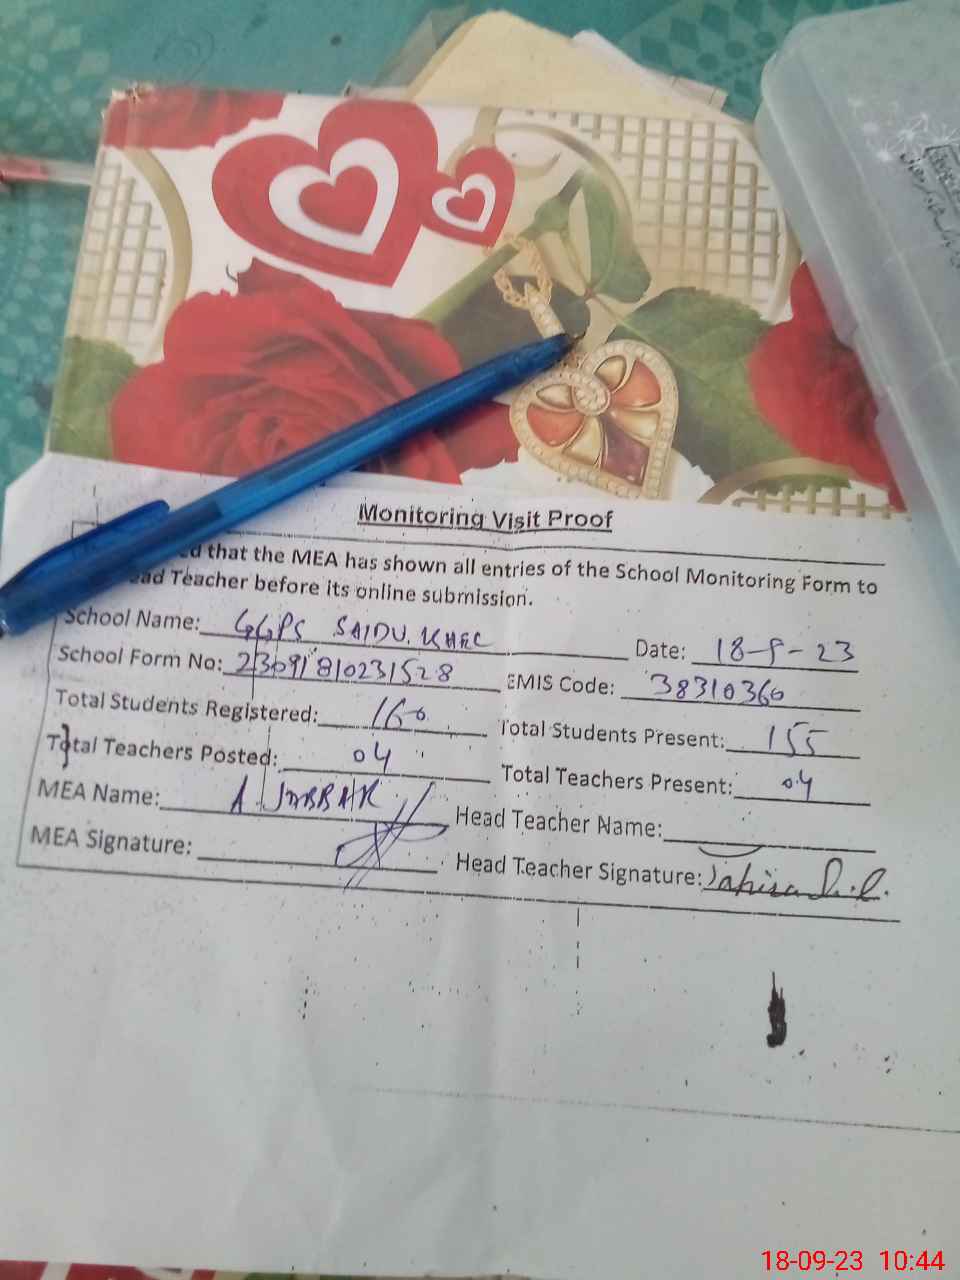 Monitoring Visit Proof
that the MEA has shown all entries of the School Monitoring Form to
ead Teacher before its online submission.
School Name: GGPS SAIDU KHEL Date: 18-9-23
School Form No: 23091810231528 EMIS Code: 38310360
Total Students Registered: 160 Total Students Present: 155
Total Teachers Posted: 04 Total Teachers Present: 04
MEA Name: A JABBAR Head Teacher Name:
MEA Signature: Head Teacher Signature:
18-09-23 10:44